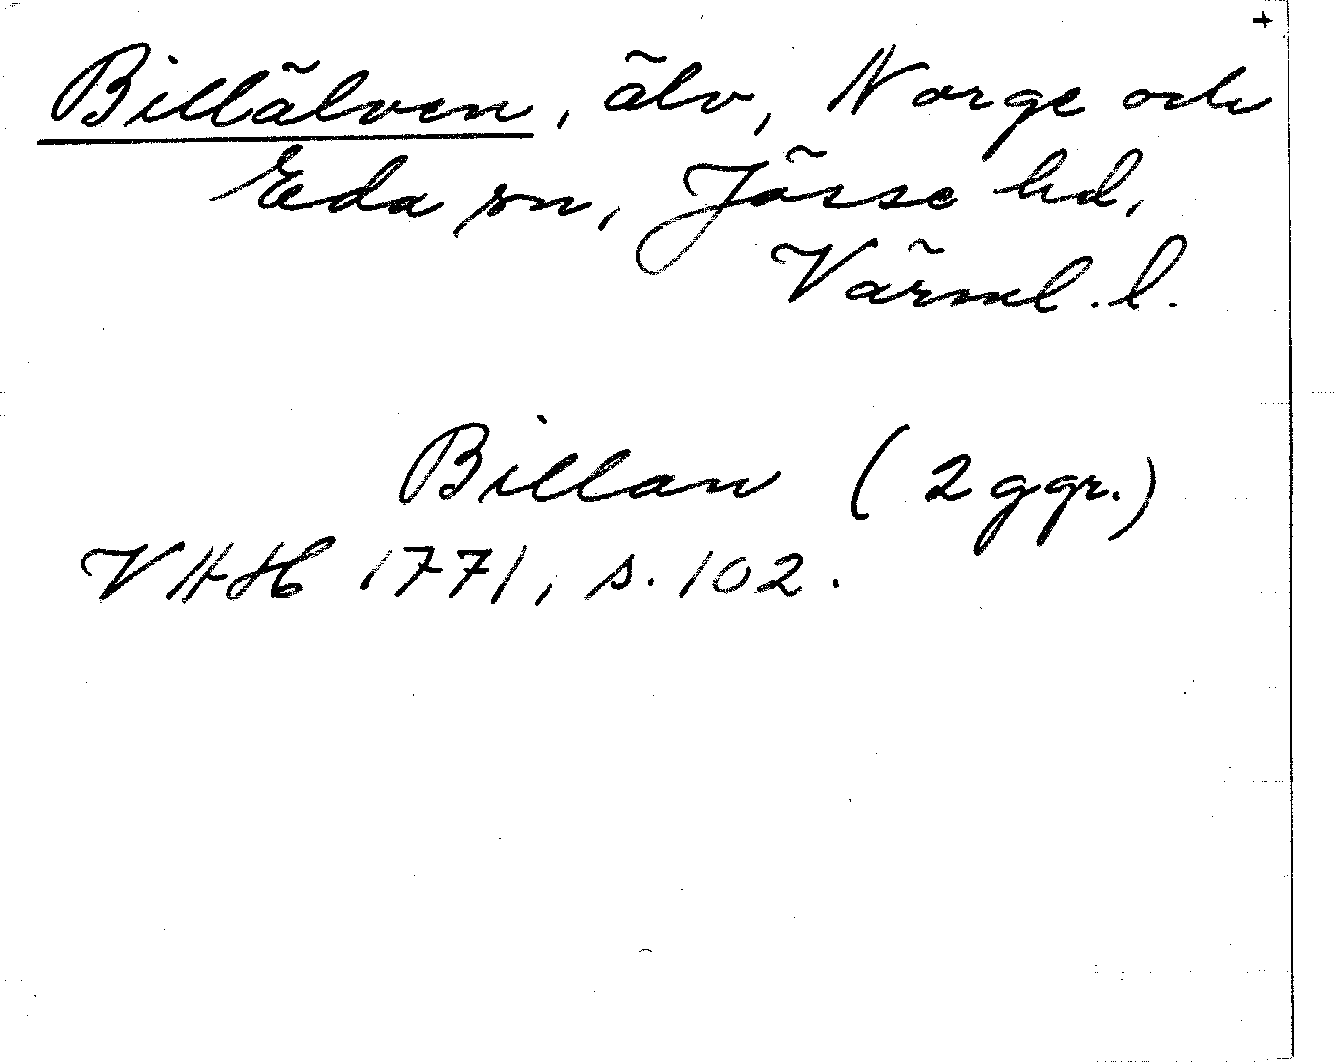 +
Billälven, älv, Norge och
Eda sn, Jösse hd,
Värml. l.
Billan (2 ggr.)
VAH 1771, s. 102.